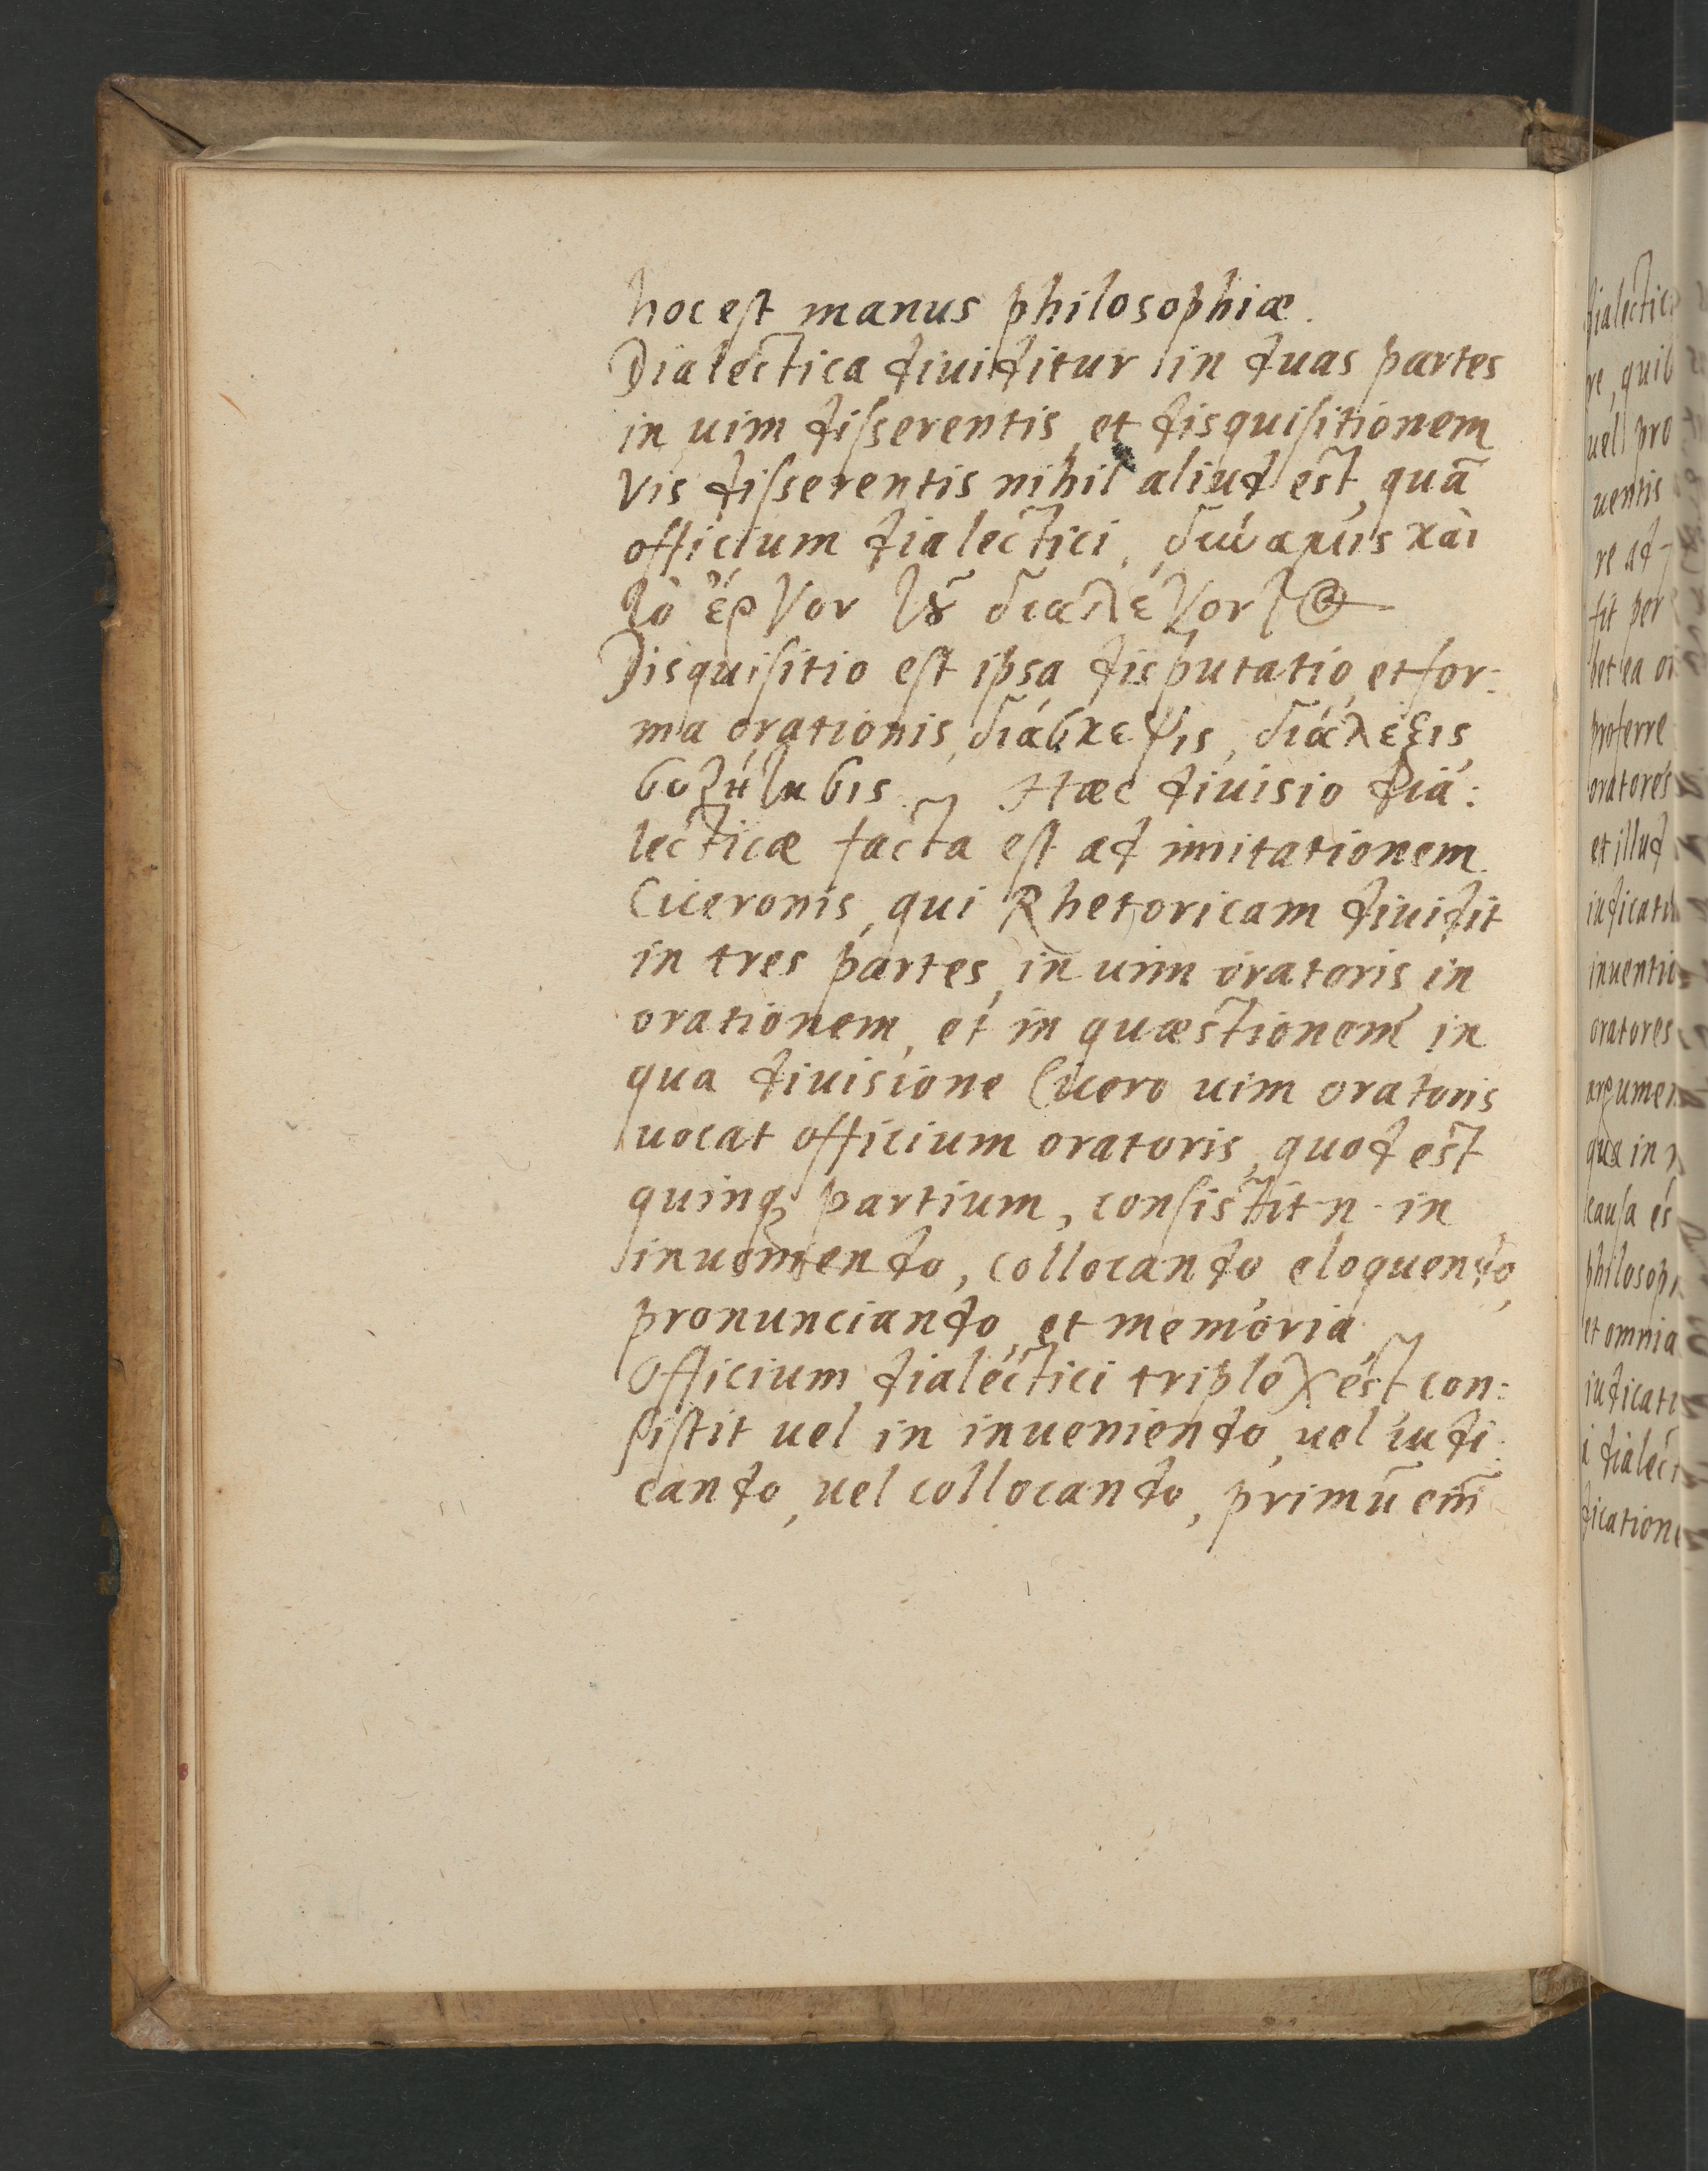 hoc est manus philosophiæ.
Dialectica diuiditur in duas partes
in uim disserentis et disquisitionem
Vis disserentis nihil aliud est, quā
officium dialectici, δύναμις καὶ
τὸ ἔργον τȣ͂ διαλεγον
Disquisitio est ipsa disputatio, et for:
ma orationis, διάσκεψις, διάλεξις,
συζήτησις. Hæc diuisio dia:
lecticæ facta est ad imitationem
Ciceronis, qui Rhetoricam diuidit
in tres partes, in uim oratoris, in
orationem, et in quæstionem in
qua diuisione Cicero uim oratoris
uocat officium oratoris, quod est
quinq; partium, consistit n. in
inueniendo, collocando, eloquendo,
pronunciando, et memoria
Officium dialectici triplex est, con:
sistit uel in inueniendo, uel iudi:
cando, uel collocando, primū em̄
dialectic
re, quib
uel pro
uentis
re ad
sit per
bet ea
proferre
oratores
et illud
iudicati
inuenti
oratores
argumen
qua in
causa es
philosop
et omnia
iudicati
i dialect
dicatione